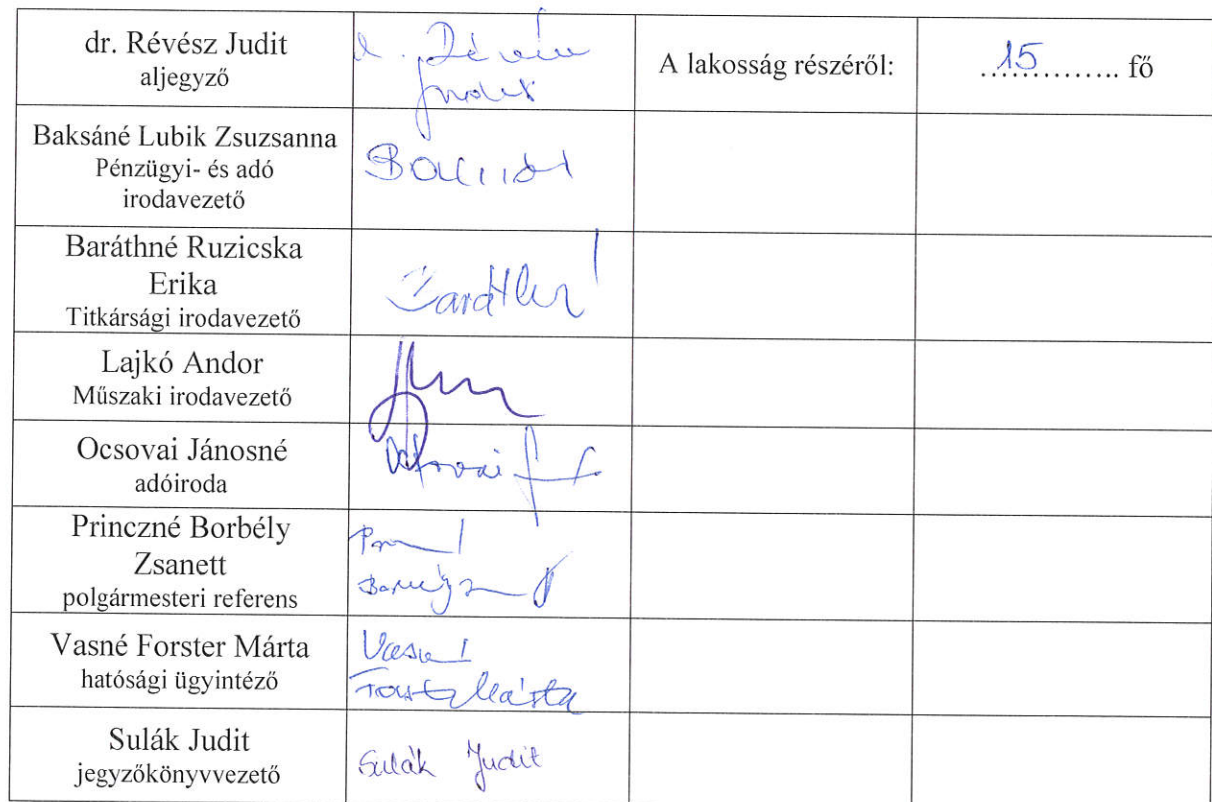 dr. Révész Judit
aljegyző
dr. Révész
Judit
A lakosság részéről:
15 fő
Baksáné Lubik Zsuzsanna
Pénzügyi- és adó
irodavezető
Baráthné Ruzicska
Erika
Titkársági irodavezető
Lajkó Andor
Műszaki irodavezető
Ocsovai Jánosné
adóiroda
Ocsovai
Princzné Borbély
Zsanett
polgármesteri referens
Vasné Forster Márta
hatósági ügyintéző
Vasné
Forster Márta
Sulák Judit
jegyzőkönyvvezető
Sulák Judit